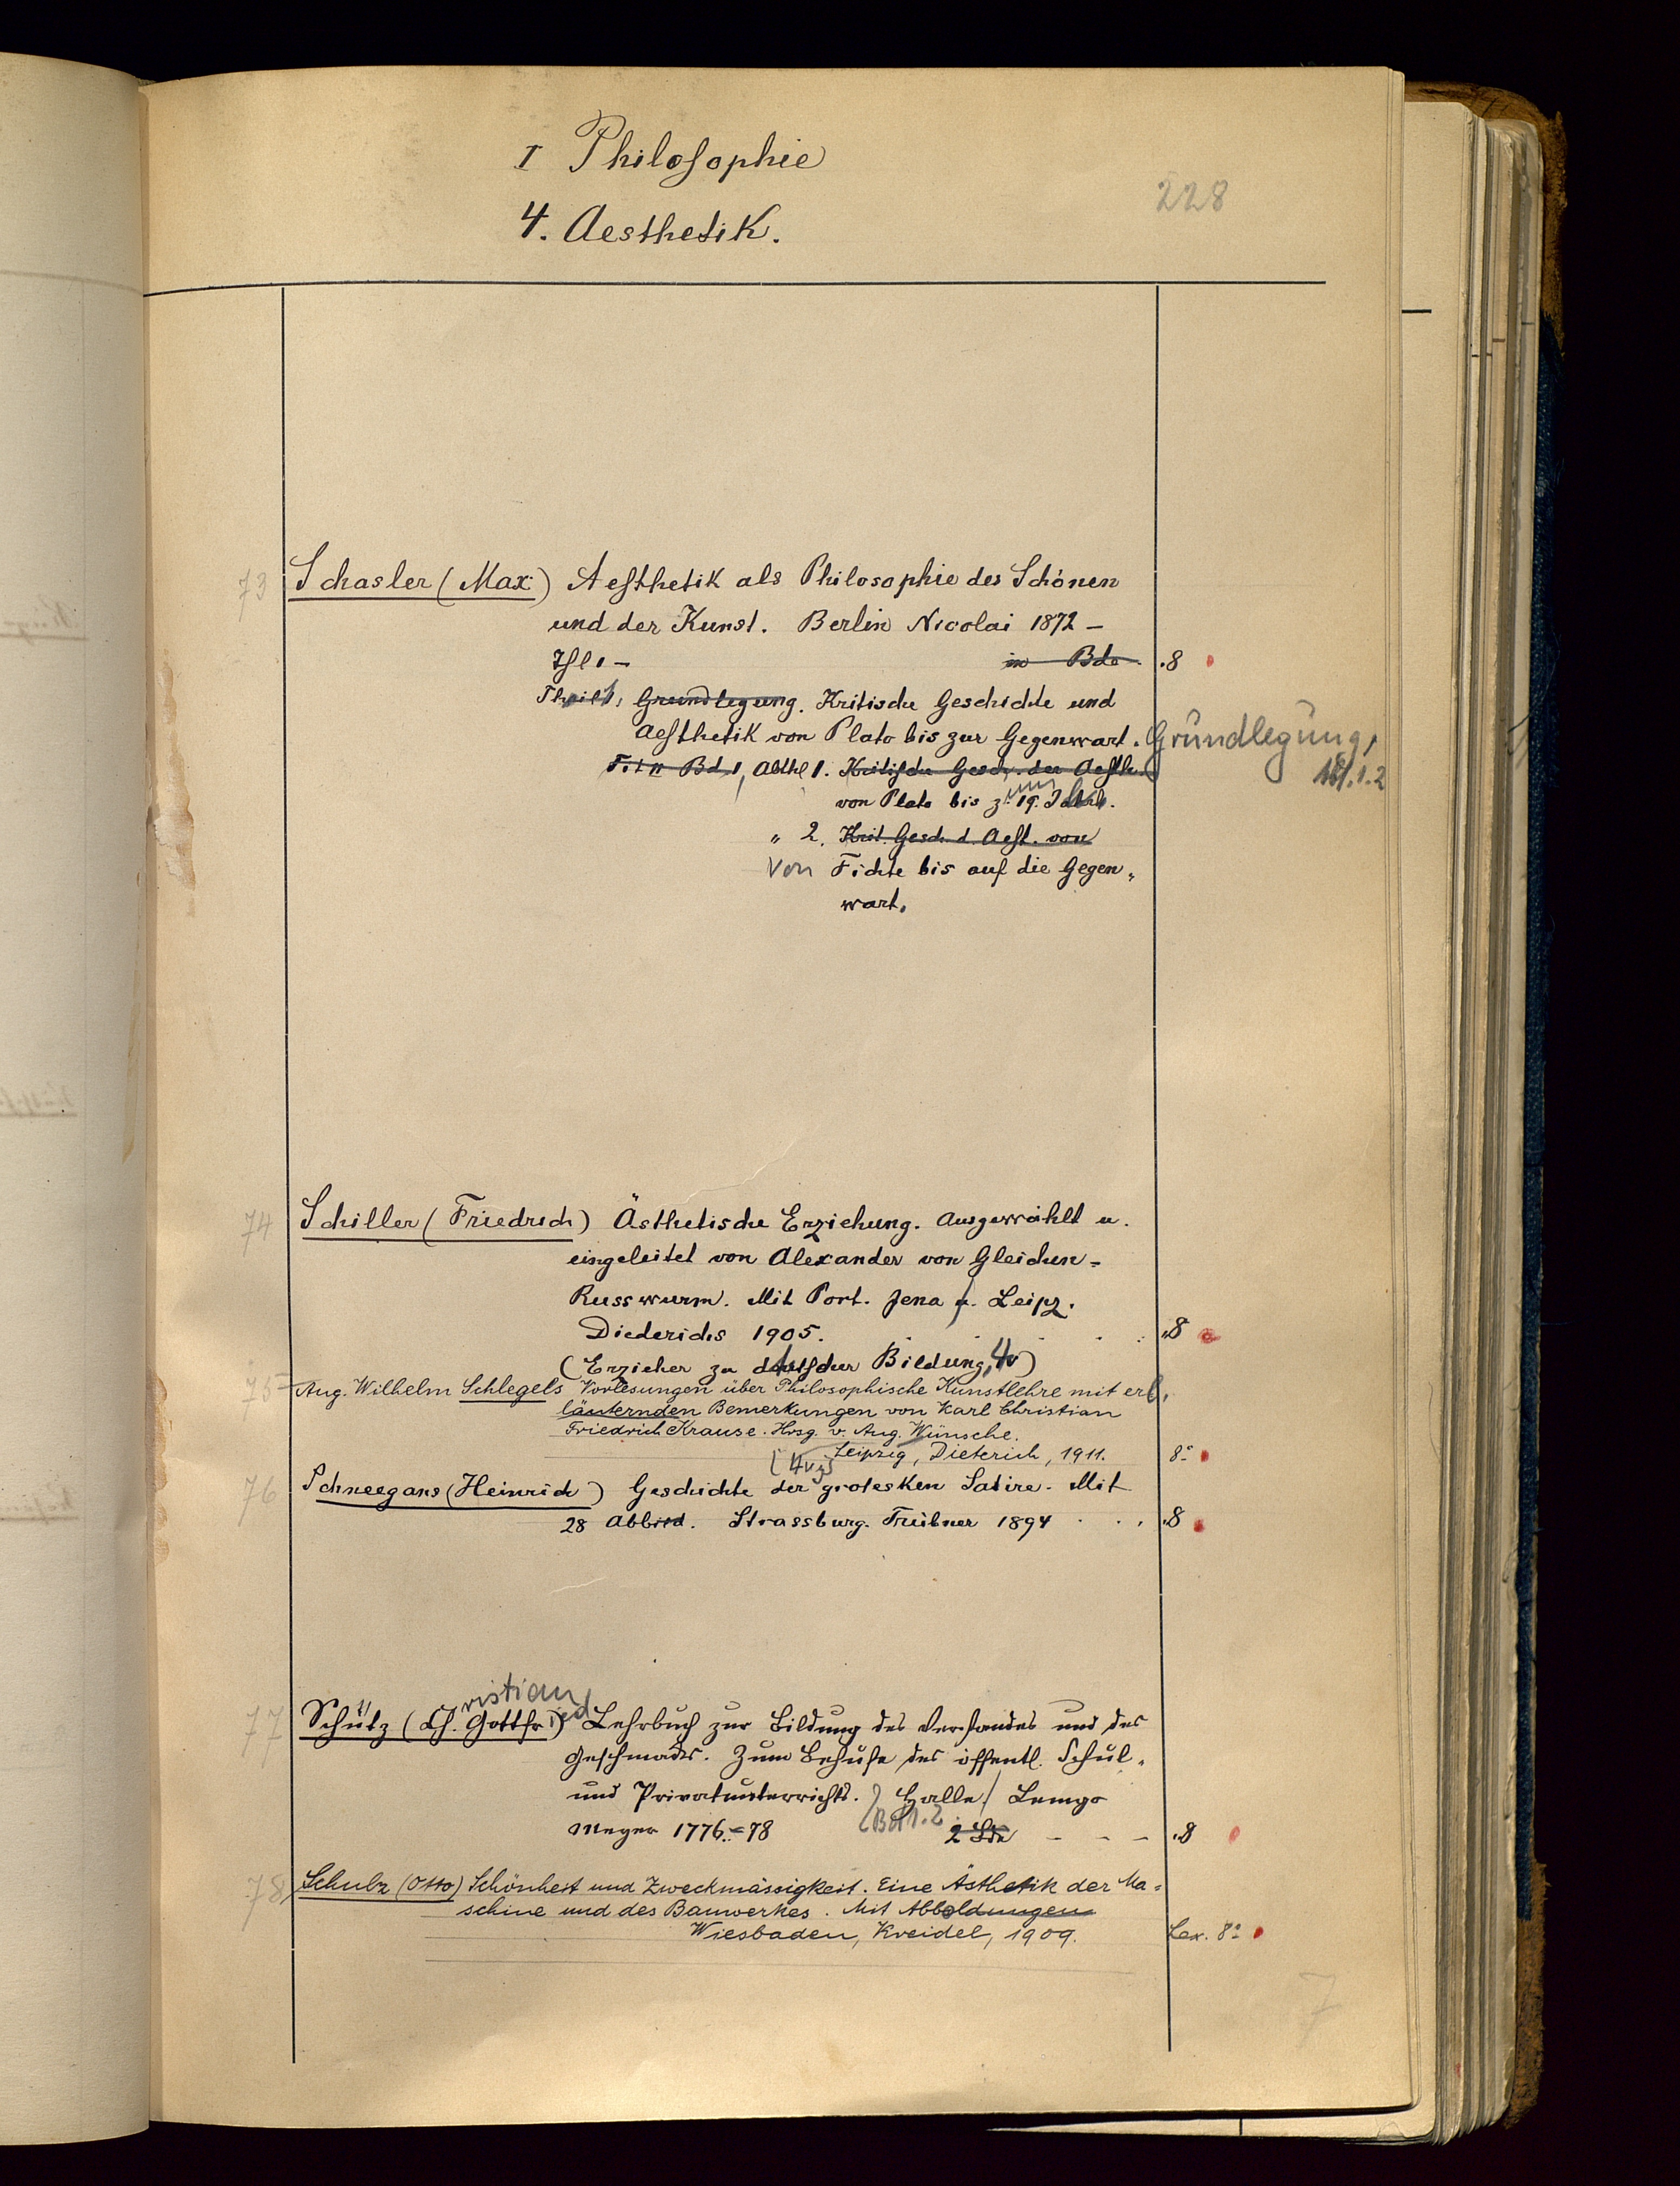 I Philosophie
228
4. Aesthetik.
73 Schasler (Max) Aesthetik als Philosophie des Schönen
und der Kunst. Berlin Nicolai 1872 –
Thl 1 – in Bde. 8
Theil 1, Grundlegung. Kritische Geschichte und
Aesthetik von Plato bis zur Gegenwart. Grundlegung,
Bd. 1, Abthl 1. Kritische Gesch. der Aesth. 1.2
von Plato bis zum 19. Jahrh.
" 2. Krit. Gesch. d. Aest. von
Von Fichte bis auf die Gegen-
wart.
74 Schiller (Friedrich) Ästhetische Erziehung. Ausgewählt u.
eingeleitet von Alexander von Gleichen-
Russwurm. Mit Port. Jena u. Leipz.
Diederichs 1905. 8
(Erzieher zu deutscher Bildung, 4)
75 Aug. Wilhelm Schlegels Vorlesungen über Philosophische Kunstlehre mit er-
läuternden Bemerkungen von Karl Christian
Friedrich Krause. Hrsg. v. Aug. Wünsche.
Leipzig, Dieterich, 1911. 8°
76 Schneegans (Heinrich) Geschichte der grotesken Satire. Mit
28 Abbild. Strassburg. Trübner 1894 . . . 8
ristian
77 Schütz (Ch. Gottfried) Lehrbuch zur Bildung des Verstandes und des
Geschmacks. Zum Behufe des öffentl. Schul-
und Privatunterrichts. Halle / Lemgo
Meyer 1776–78 Bd 1.2 2 Bde – – – 8
78 Schulz (Otto) Schönheit und Zweckmässigkeit. Eine Ästhetik der Ma-
schine und des Bauwerkes. Mit Abbildungen
Wiesbaden, Kreidel, 1909. Lex. 8°
7